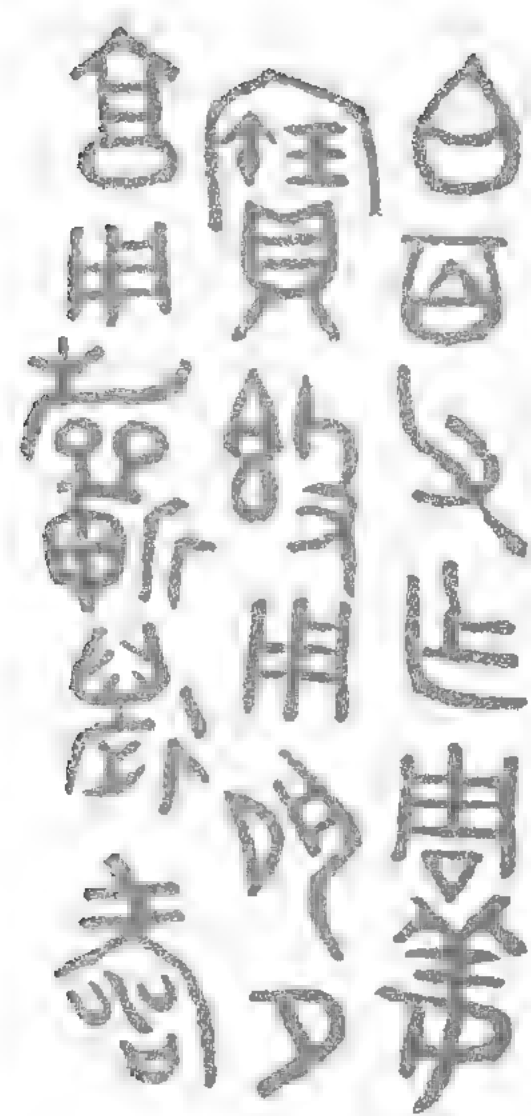 白百父乍周姜
寶簋用夙夕
亯用祈萬壽